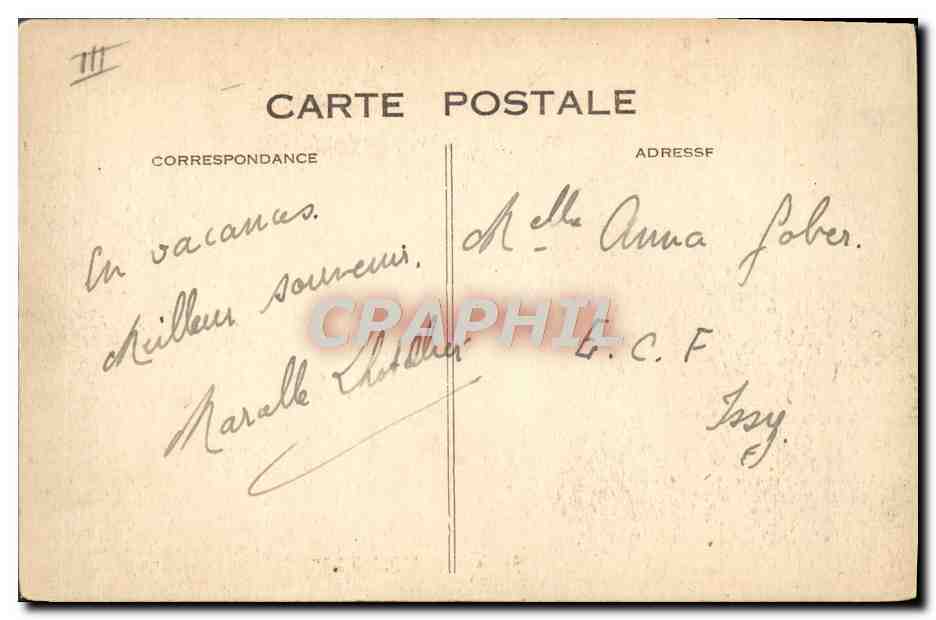 III
CARTE POSTALE
CORRESPONDANCE
ADRESSE
En vacances.
Meilleur souvenir.
Marcelle
Melle Anna Gober.
E. C. F
Issy
CRAPHIL